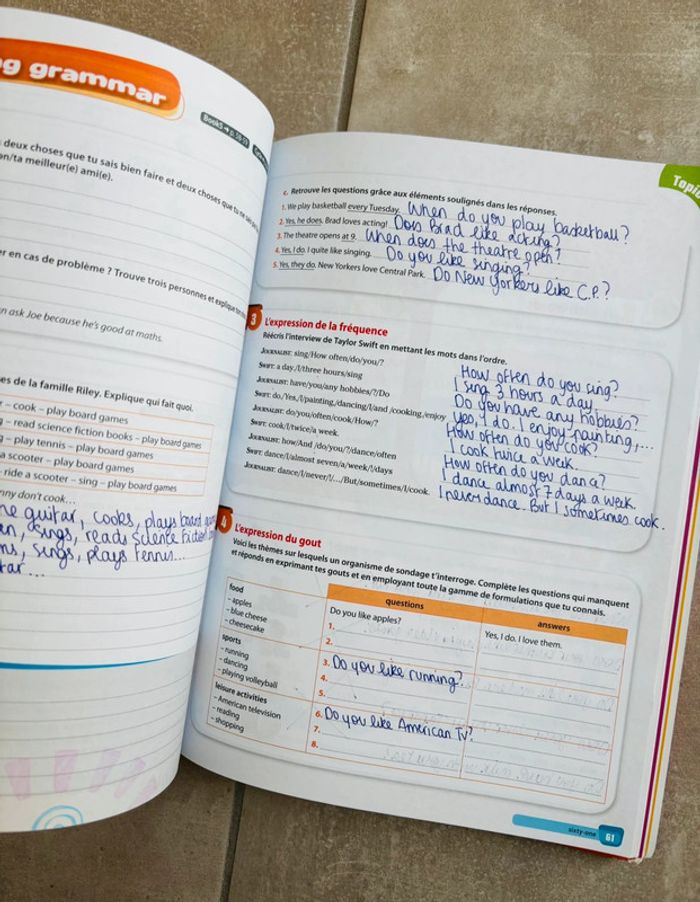 g grammar
Book5 → p. 58-59
deux choses que tu sais bien faire et deux choses que tu ne sais
on/ta meilleur(e) ami(e).
er en cas de problème ? Trouve trois personnes et explique
n ask Joe because he's good at maths.
es de la famille Riley. Explique qui fait quoi.
– cook – play board games
– read science fiction books – play board games
– play tennis – play board games
a scooter – play board games
ride a scooter – sing – play board games
nny don't cook...
he guitar, cooks, plays board
en, sings, reads science fiction
ns, sings, plays tennis...
tar...
Topic
c. Retrouve les questions grâce aux éléments soulignés dans les réponses.
1. We play basketball every Tuesday. When do you play basketball?
2. Yes, he does. Brad loves acting! Does Brad like acting?
3. The theatre opens at 9. When does the theatre open?
4. Yes, I do. I quite like singing. Do you like singing?
5. Yes, they do. New Yorkers love Central Park. Do New Yorkers like C.P.?
3 L'expression de la fréquence
Réécris l'interview de Taylor Swift en mettant les mots dans l'ordre.
Journalist: sing/How often/do/you/? How often do you sing?
Swift: a day/I/three hours/sing I sing 3 hours a day
Journalist: have/you/any hobbies/?/Do Do you have any hobbies?
Swift: do/Yes,/I/painting,/dancing/I/and /cooking,/enjoy yes, I do. I enjoy painting,...
Journalist: do/you/often/cook/How/? How often do you cook?
Swift: cook/I/twice/a week. I cook twice a week.
Journalist: how/And /do/you/?/dance/often How often do you dance?
Swift: dance/I/almost seven/a/week/!/days I dance almost 7 days a week.
Journalist: dance/I/never/!/.../But/sometimes/I/cook. I never dance. But I sometimes cook.
4 L'expression du gout
Voici les thèmes sur lesquels un organisme de sondage t'interroge. Complète les questions qui manquent
et réponds en exprimant tes gouts et en employant toute la gamme de formulations que tu connais.
questions answers
food
– apples
– blue cheese
– cheesecake
Do you like apples? Yes, I do. I love them.
1.
2.
sports
– running
– dancing
– playing volleyball
3. Do you like running?
4.
5.
leisure activities
– American television
– reading
– shopping
6. Do you like American TV?
7.
8.
sixty-one 61